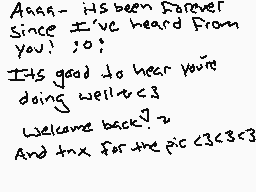 Aaaa- its been forever
since I've heard from
you! :o:
Its good to hear you're
doing well~<3
welcome back! ~
And tnx for the pic <3<3<3